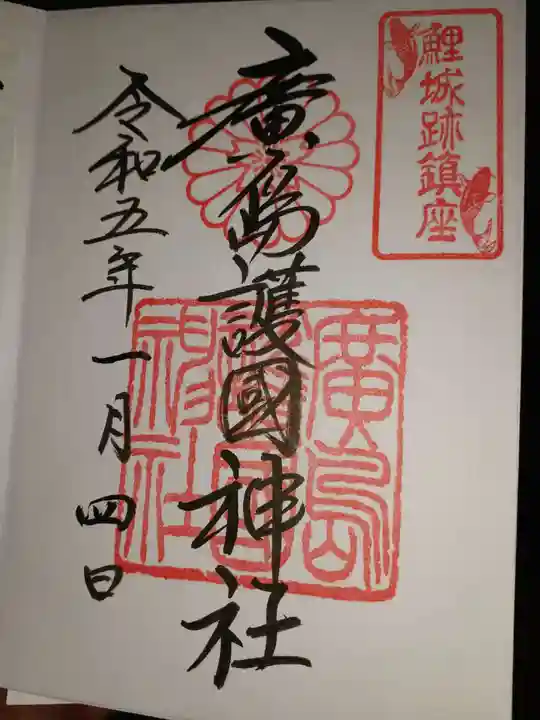 鯉城跡鎮座
廣島護國神社
廣島
護國
神社
令和五年一月四日